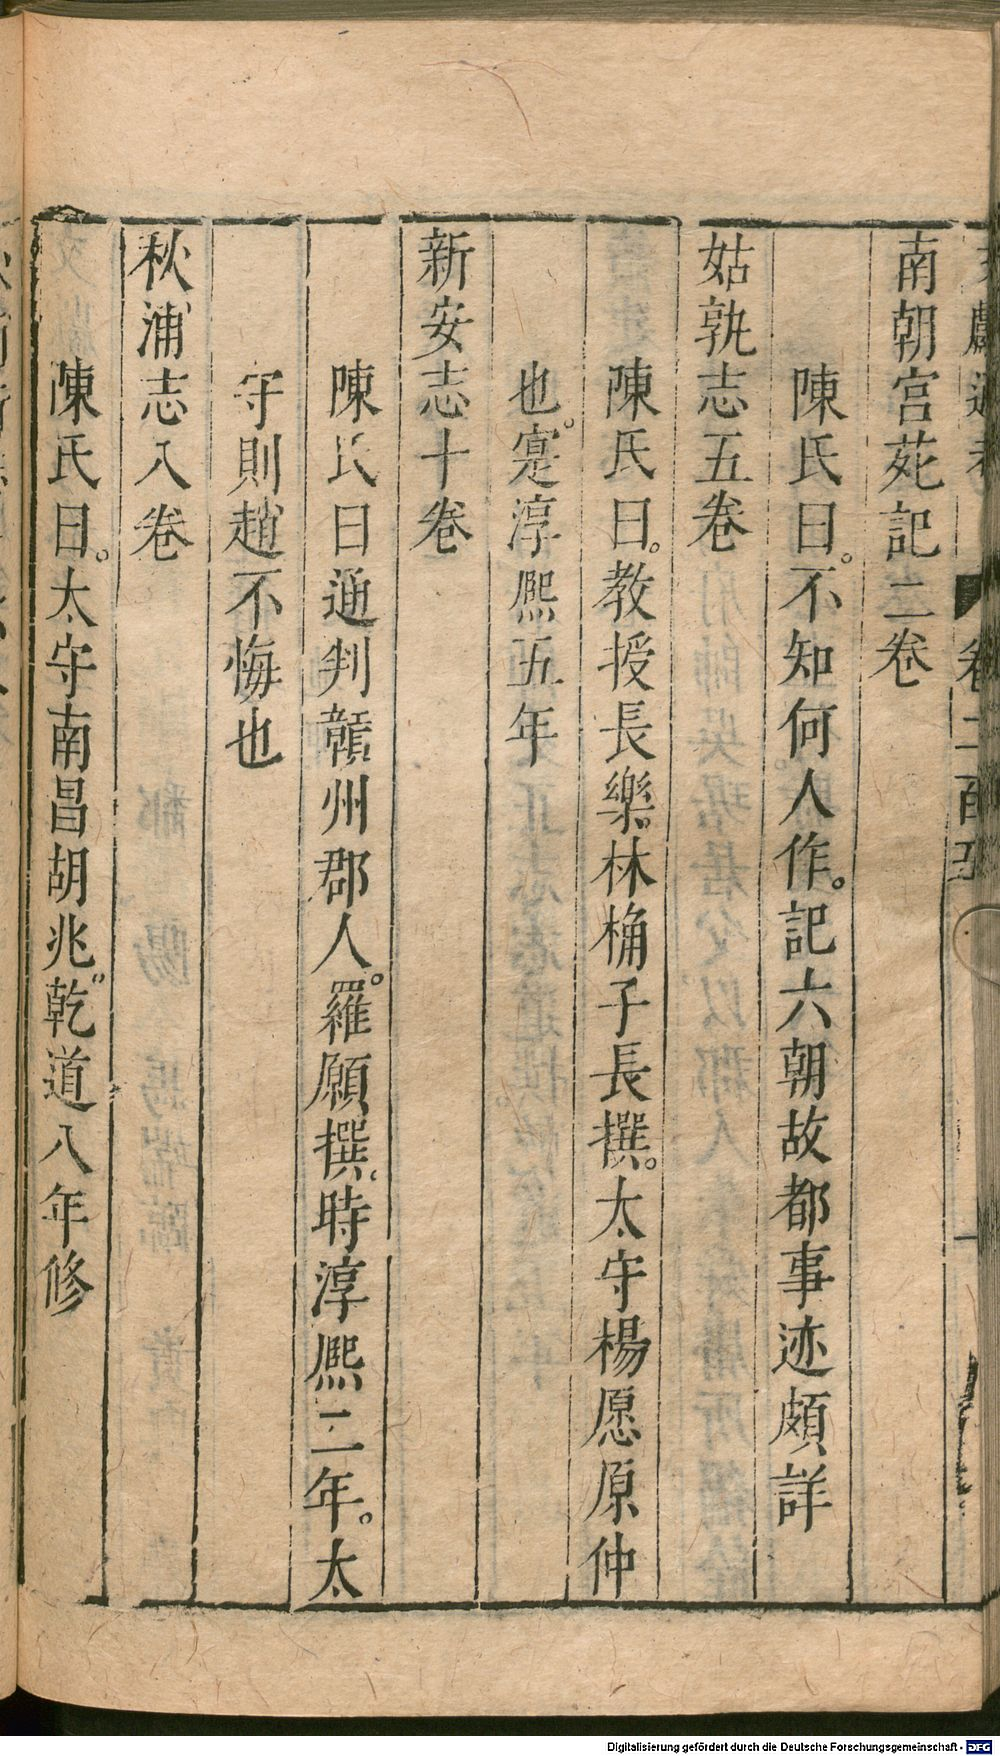 南朝宮苑記二卷
陳氏曰。不知何人作。記六朝故都事迹頗詳
姑孰志五卷
陳氏曰。教授長樂林桷子長撰。太守楊愿原仲
也。寔淳熙五年
新安志十卷
陳氏曰通判贛州郡人。羅願撰。時淳熙二年。太
守則趙不悔也
秋浦志八卷
陳氏曰。太守南昌胡兆乾道八年修
Digitalisierung gefördert durch die Deutsche Forschungsgemeinschaft - DFG